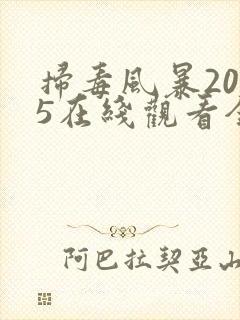 掃毒風暴20
5在綫觀看全
阿巴拉契亞山